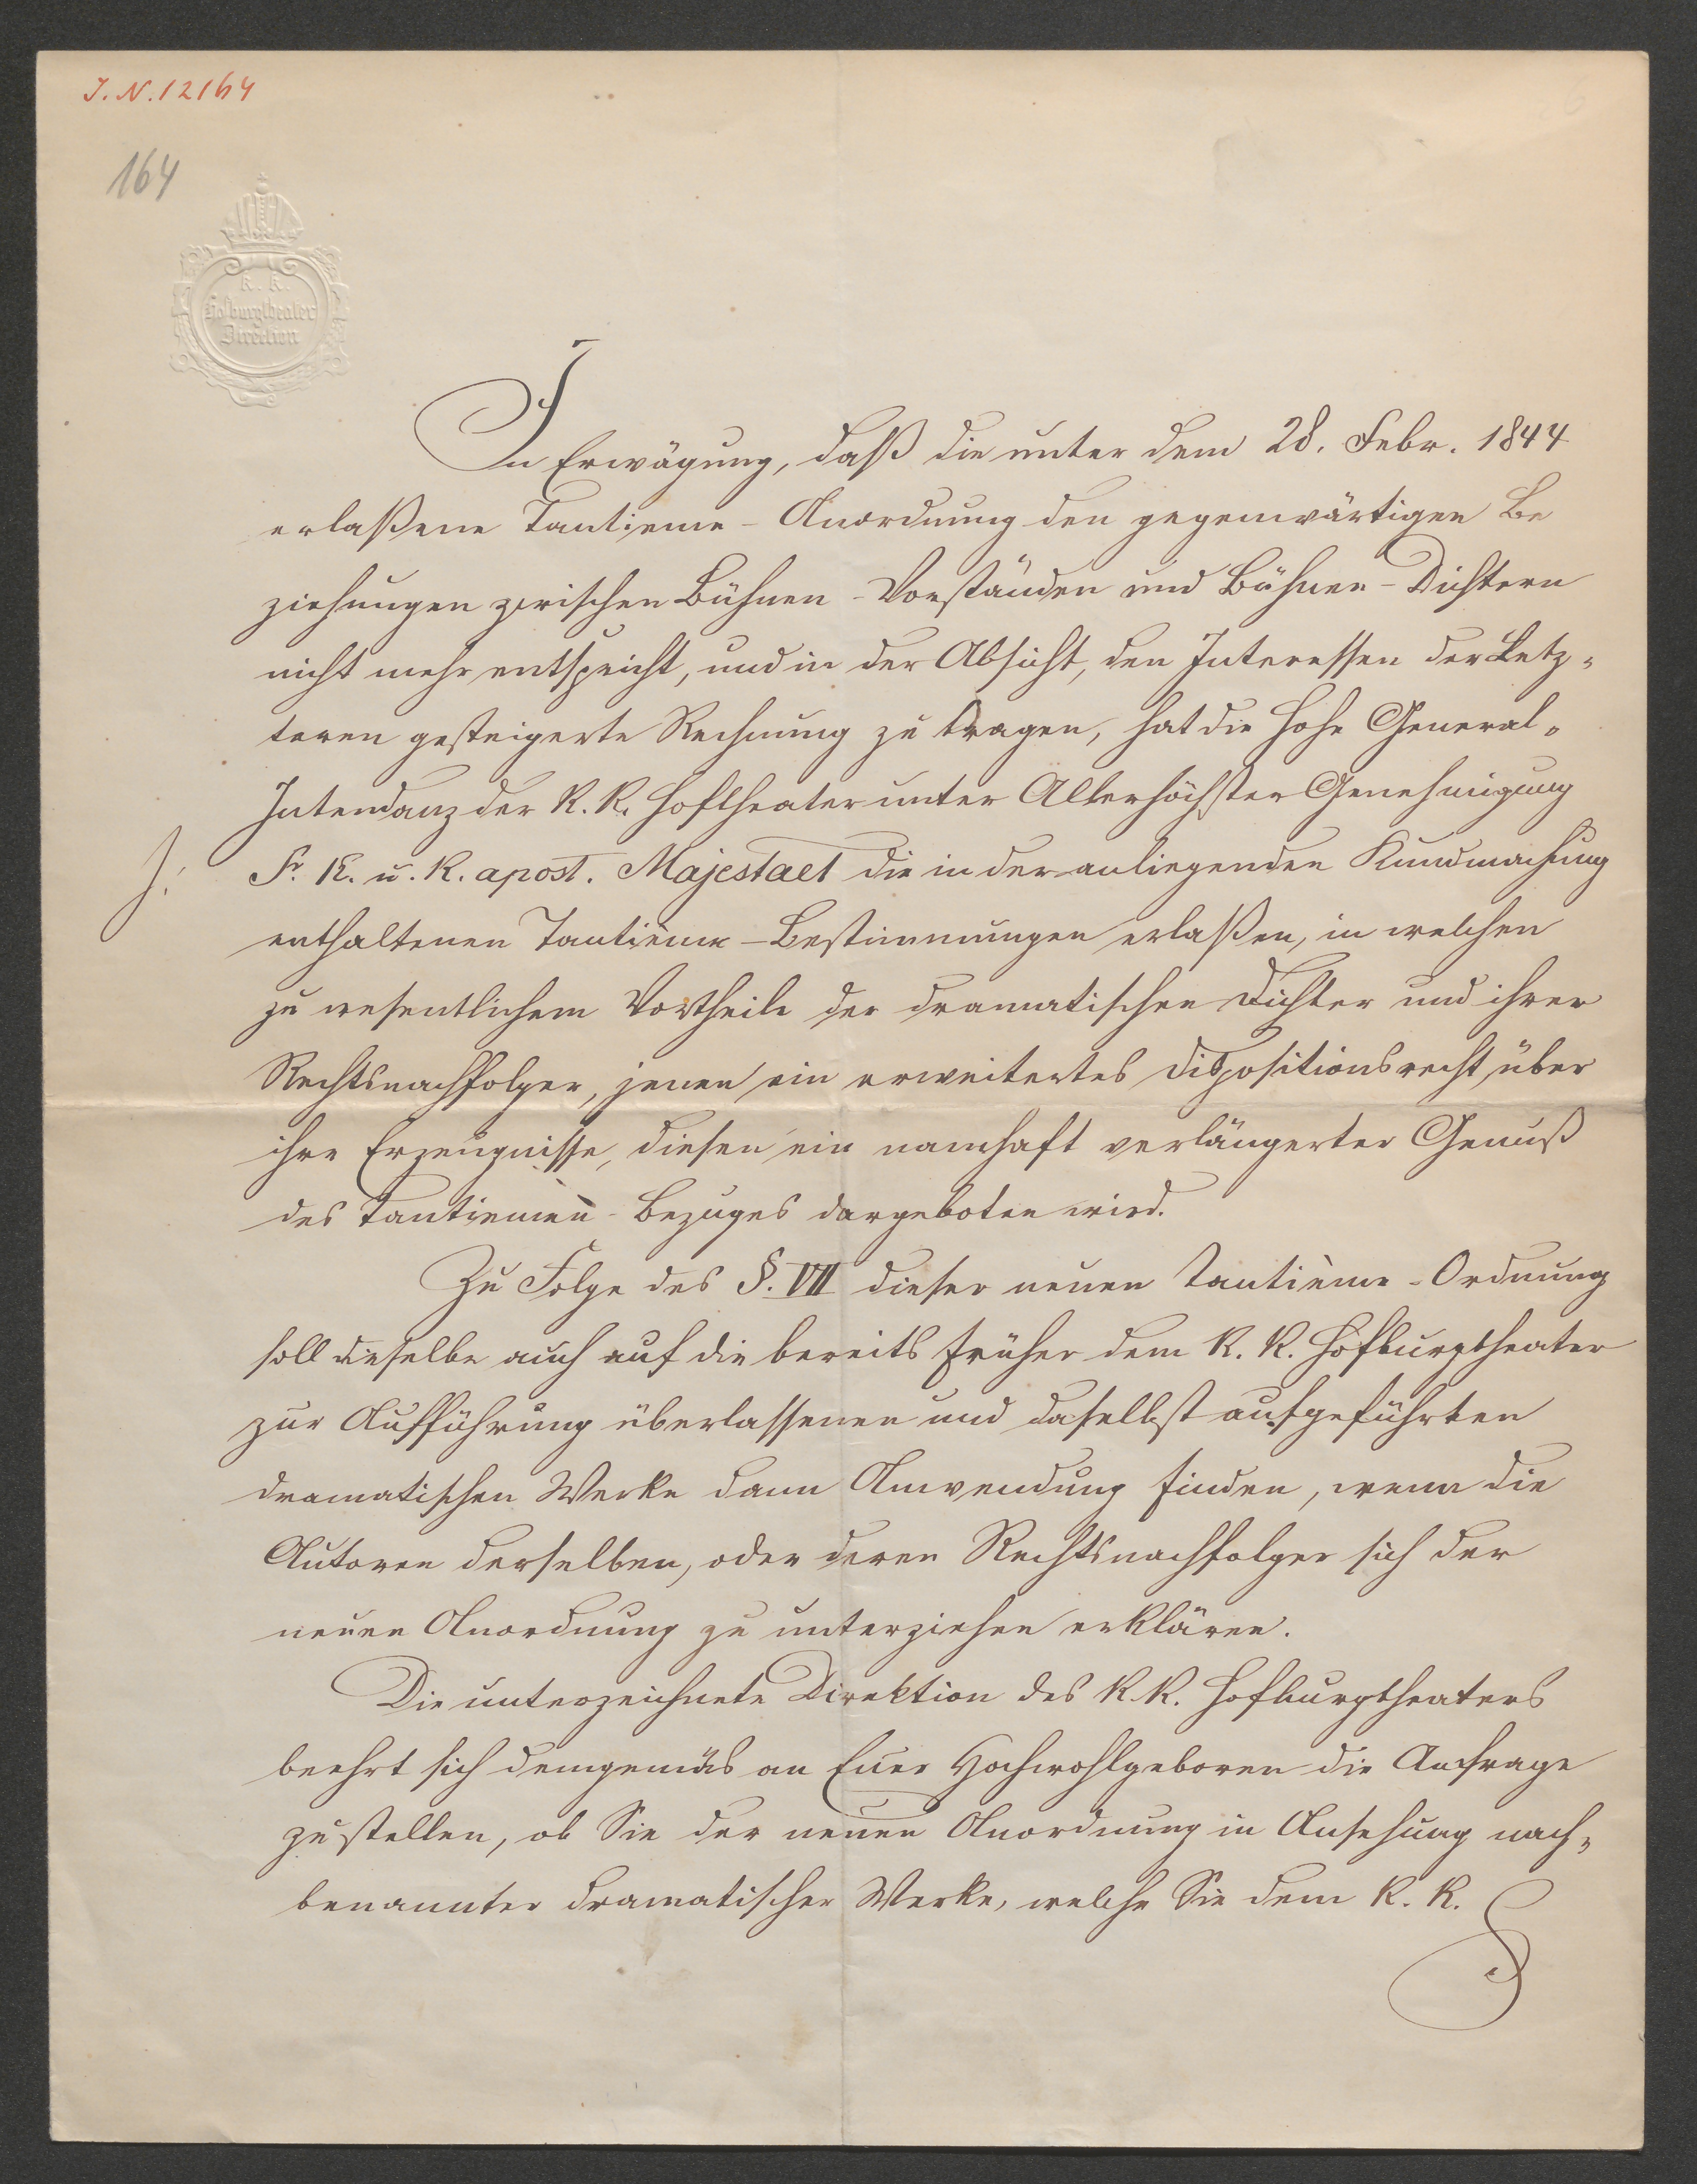 J. N. 12164
164
K. K.
Hofburgtheater
Direction
In Erwägung, daß die unter dem 28. Febr. 1844
erlaßene Tantieme-Anordnung den gegenwärtigen Be
ziehungen zwischen Bühnen-Vorständen und Bühnen-Dichtern
nicht mehr entspricht, und in der Absicht, den Interessen der Letz=
teren gesteigerte Rechnung zu tragen, hat die hohe General=
Intendanz der K. K. Hoftheater unter Allerhöchster Genehmigung
Sr. K. u. K. apost. Majestaet die in der anliegenden Kundmachung
enthaltenen Tantième-Bestimmungen erlaßen, in welchen
zu wesentlichem Vortheile der dramatischen Dichter und ihrer
Rechtsnachfolger, jenen ein erweitertes Dispositionsrecht über
ihre Erzeugnisse, diesen ein namhaft verlängerter Genuß
des Tantièmen-Bezuges dargeboten wird.
Zu Folge des §. VII dieser neuen Tantième-Ordnung
soll dieselbe auch auf die bereits früher dem K. K. Hofburgtheater
zur Aufführung überlassenen und daselbst aufgeführten
dramatischen Werke dann Anwendung finden, wenn die
Autoren derselben, oder deren Rechtsnachfolger sich der
neuen Anordnung zu unterziehen erklären.
Die unterzeichnete Direktion des K. K. Hofburgtheaters
beehrt sich demgemäs an Euer Hochwohlgeboren die Anfrage
zu stellen, ob Sie der neuen Anordnung in Ansehung nach=
benannter dramatischer Werke, welche Sie dem K. K.